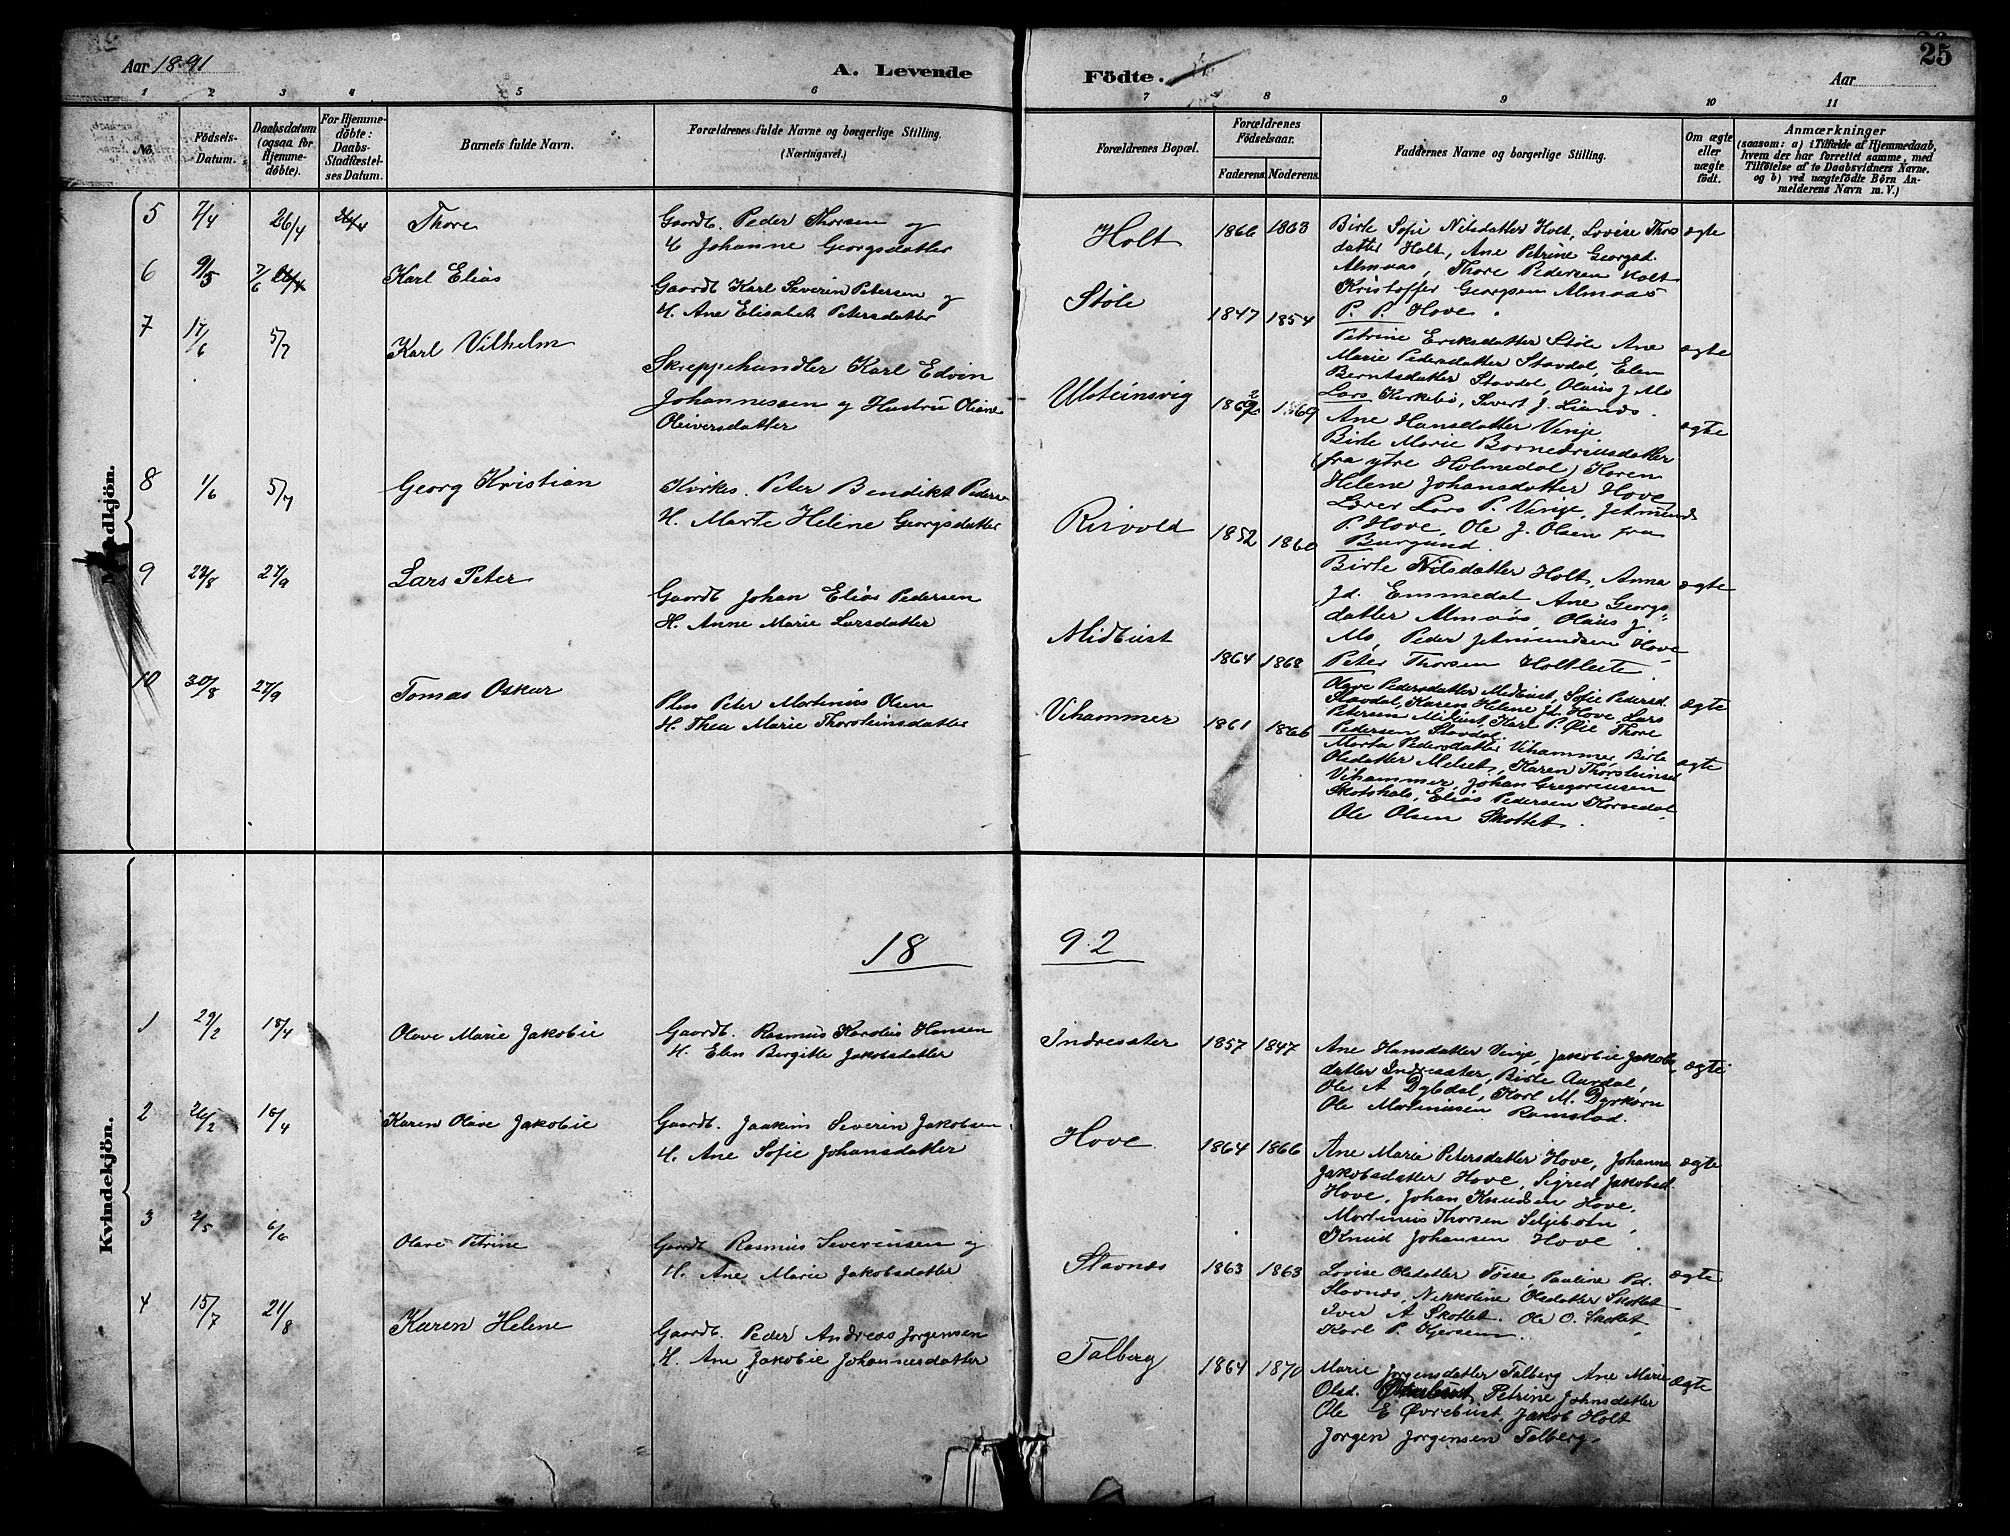 25
Aar 1891
A. Levende
Födte.
Aar
1 2 3 4 5 6 7 8 9 10 11
No.
Födsels-Datum.
Daabsdatum (ogsaa for Hjemmedöbte).
For Hjemmedöbte: Daabs-Stadfæstelses Datum.
Barnets fulde Navn.
Forældrenes fulde Navne og borgerlige Stilling.
(Næringsvei.)
Forældrenes Bopæl.
Forældrenes Födselsaar.
Faderens. Moderens.
Faddernes Navne og borgerlige Stilling.
Om ægte eller uægte födt.
Anmærkninger
(saasom: a) i Tilfælde af Hjemmedaab, hvem der har forrettet samme, med Tilföielse af to Daabsvidners Navne. og b) ved uægtefödte Börn Anmelderens Navn m. V.)
Kvindekjön.
5 7/4 26/4 Thore
Gaardb. Peder Thorsen og
H. Johanne Georgsdatter
Holt 1866
Birte Sofie Nilsdatter Holt, Lovise Thors ægte
datter Holt, Ane Petrine Georgsd.
Almaas, Thore Pedersen Holt
Kristoffer Georgsen Almaas
P. P. Hove.
6 9/5 7/6 Karl Elias
Gaardb Karl Severin Petersen og
H. Ane Elisabet Petersdatter
Støle 1847 1854
Petrine Eriksdatter Støle Ane ægte
Marie Pedersdatter Stavdal, Elen
Berntsdatter Stavdal, Olaus J. Mo
Lars Kirkebø, Sivert J. Lianes.
7 17/6 5/7 Karl Vilhelm
Skreppehandler Karl Edvin
Johannessen og Hustru Oliane
Oliversdatter
Ulsteinsvig 1869
Ane Hansdatter Vinje ægte
Birte Marie
(fra ytre Holmedal) Karen
Helene Johansdatter Hove
Lærer Lars P. Vinje, Jetmund
P. Hove, Ole J. Olsen fra
Burgund.
8 1/6 5/7 Georg Kristian
Kirkes. Peter Bendikt Peders
H. Marte Helene Georgsdatter
Risvold 1852 1860
Birte Nilsdatter Holt, Anna ægte
Jd. Emmedal, Ane Georgs-
datter Almaas, Olaus J.
Mo, Peder Jetmundsen Hove
Peter Thorsen Holtleite.
9 27/9 Lars Peter
Gaardb Johan Elias Pedersen
H. Anne Marie Larsdatter
Midtust 1864 1868
Olave Pedersdatter Midtust, Sofie Pedersd. ægte
Stavdal, Karen Helene Jd. Hove, Lars
Petersen Midtust, Karl P. Øie Thore
Pedersen Stavdal.
10 30/8 27/9 Tomas Oskar
Plds Peter Martinus Olsen
H. Thea Marie Thorsteinsdatter
Vihammer 1861 1866
Marta Pedersdatter Vihammer, Birte ægte
Olsdatter Melset, Karen Thorsteinsd
Vihammer, Johan Gregoriusen
Skotshals, Elias Pedersen Korsedal,
Ole Olsen Skottet.
18 92
1 29/2 18/4 Olave Marie Jakobie
Gaardb. Rasmus Karolus Hansen
H. Elen Birgitte Jakobsdatter
Indresæter 1857 1847
Ane Hansdatter Vinje, Jakobie Jakobs ægte
datter Indresæter, Birte Aardal,
Ole A Dybdal, Karl M. Dyrkorn
Ole Martinusen Ramstad.
2 26/2 18/4 Karen Olave Jakobie
Gaardb. Joakim Severin Jakobsen
H. Ane Sofie Johansdatter
Hove 1864 1866
Ane Marie Petersdatter Hove, Johanne ægte
Jakobsdatter Hove, Sigrid Jakobsd.
Hove, Johan Knudsen Hove,
Martinus Thorsen Seljebotn,
Knud Johansen Hove.
3 2/5 6/6 Olave Petrine
Gaardb Rasmus Severinsen og
H. Ane Marie Jakobsdatter
Stavnes 1863 1863
Lovise Olsdatter Tøsse, Pauline Pd. ægte
Stavnes, Nikkoline Olsdatter Skottet
Iver A Skottet. Ole O. Skottet,
Karl P. Kjersem.
4 15/7 21/8 Karen Helene
Gaardb. Peder Andreas Jørgensen
H. Ane Jakobie Johannesdatter
Talberg 1864 1870
Marie Jørgensdatter Talberg Ane Marie ægte
Olsd. Petrine Johnsdatter
Ole E Øvrebust, Jakob Holt
Jørgen Jørgensen Talberg.